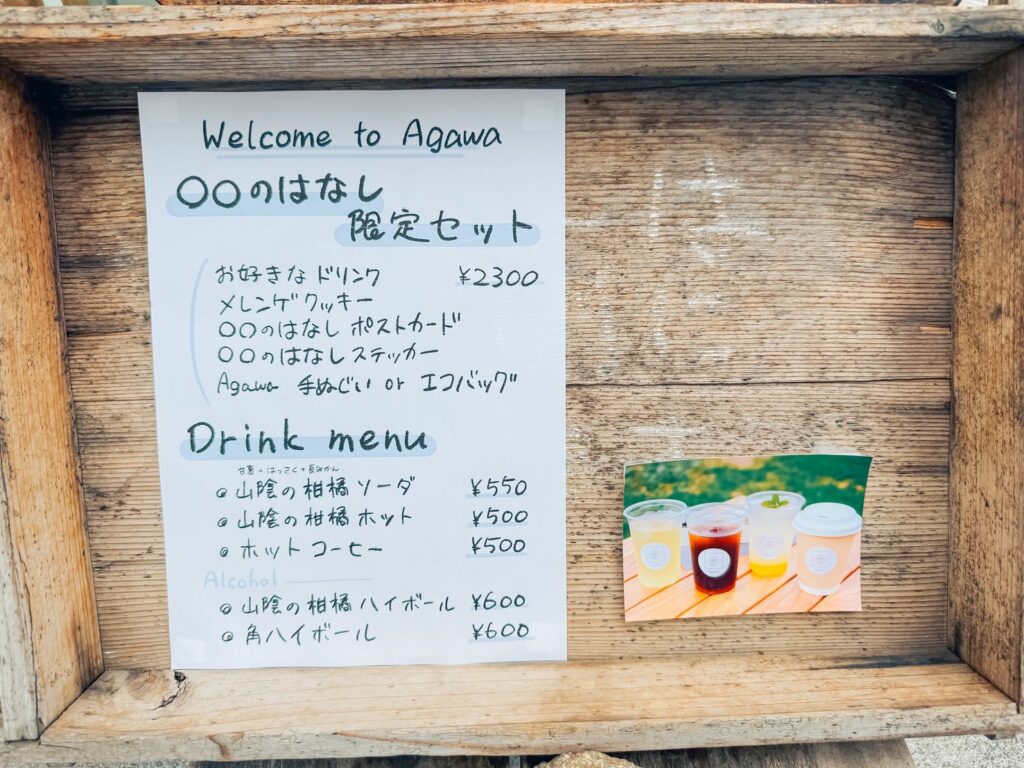 Welcome to Agawa
〇〇のはなし
限定セット
お好きなドリンク ¥2300
メレンゲクッキー
〇〇のはなし ポストカード
〇〇のはなしステッカー
Agawa 手ぬぐい or エコバッグ
Drink menu
甘夏・はっさく+夏みかん
◎山陰の柑橘ソーダ ¥550
◎山陰の柑橘ホット ¥500
◎ホットコーヒー ¥500
Alcohol
◎山陰の柑橘ハイボール ¥600
◎角ハイボール ¥600